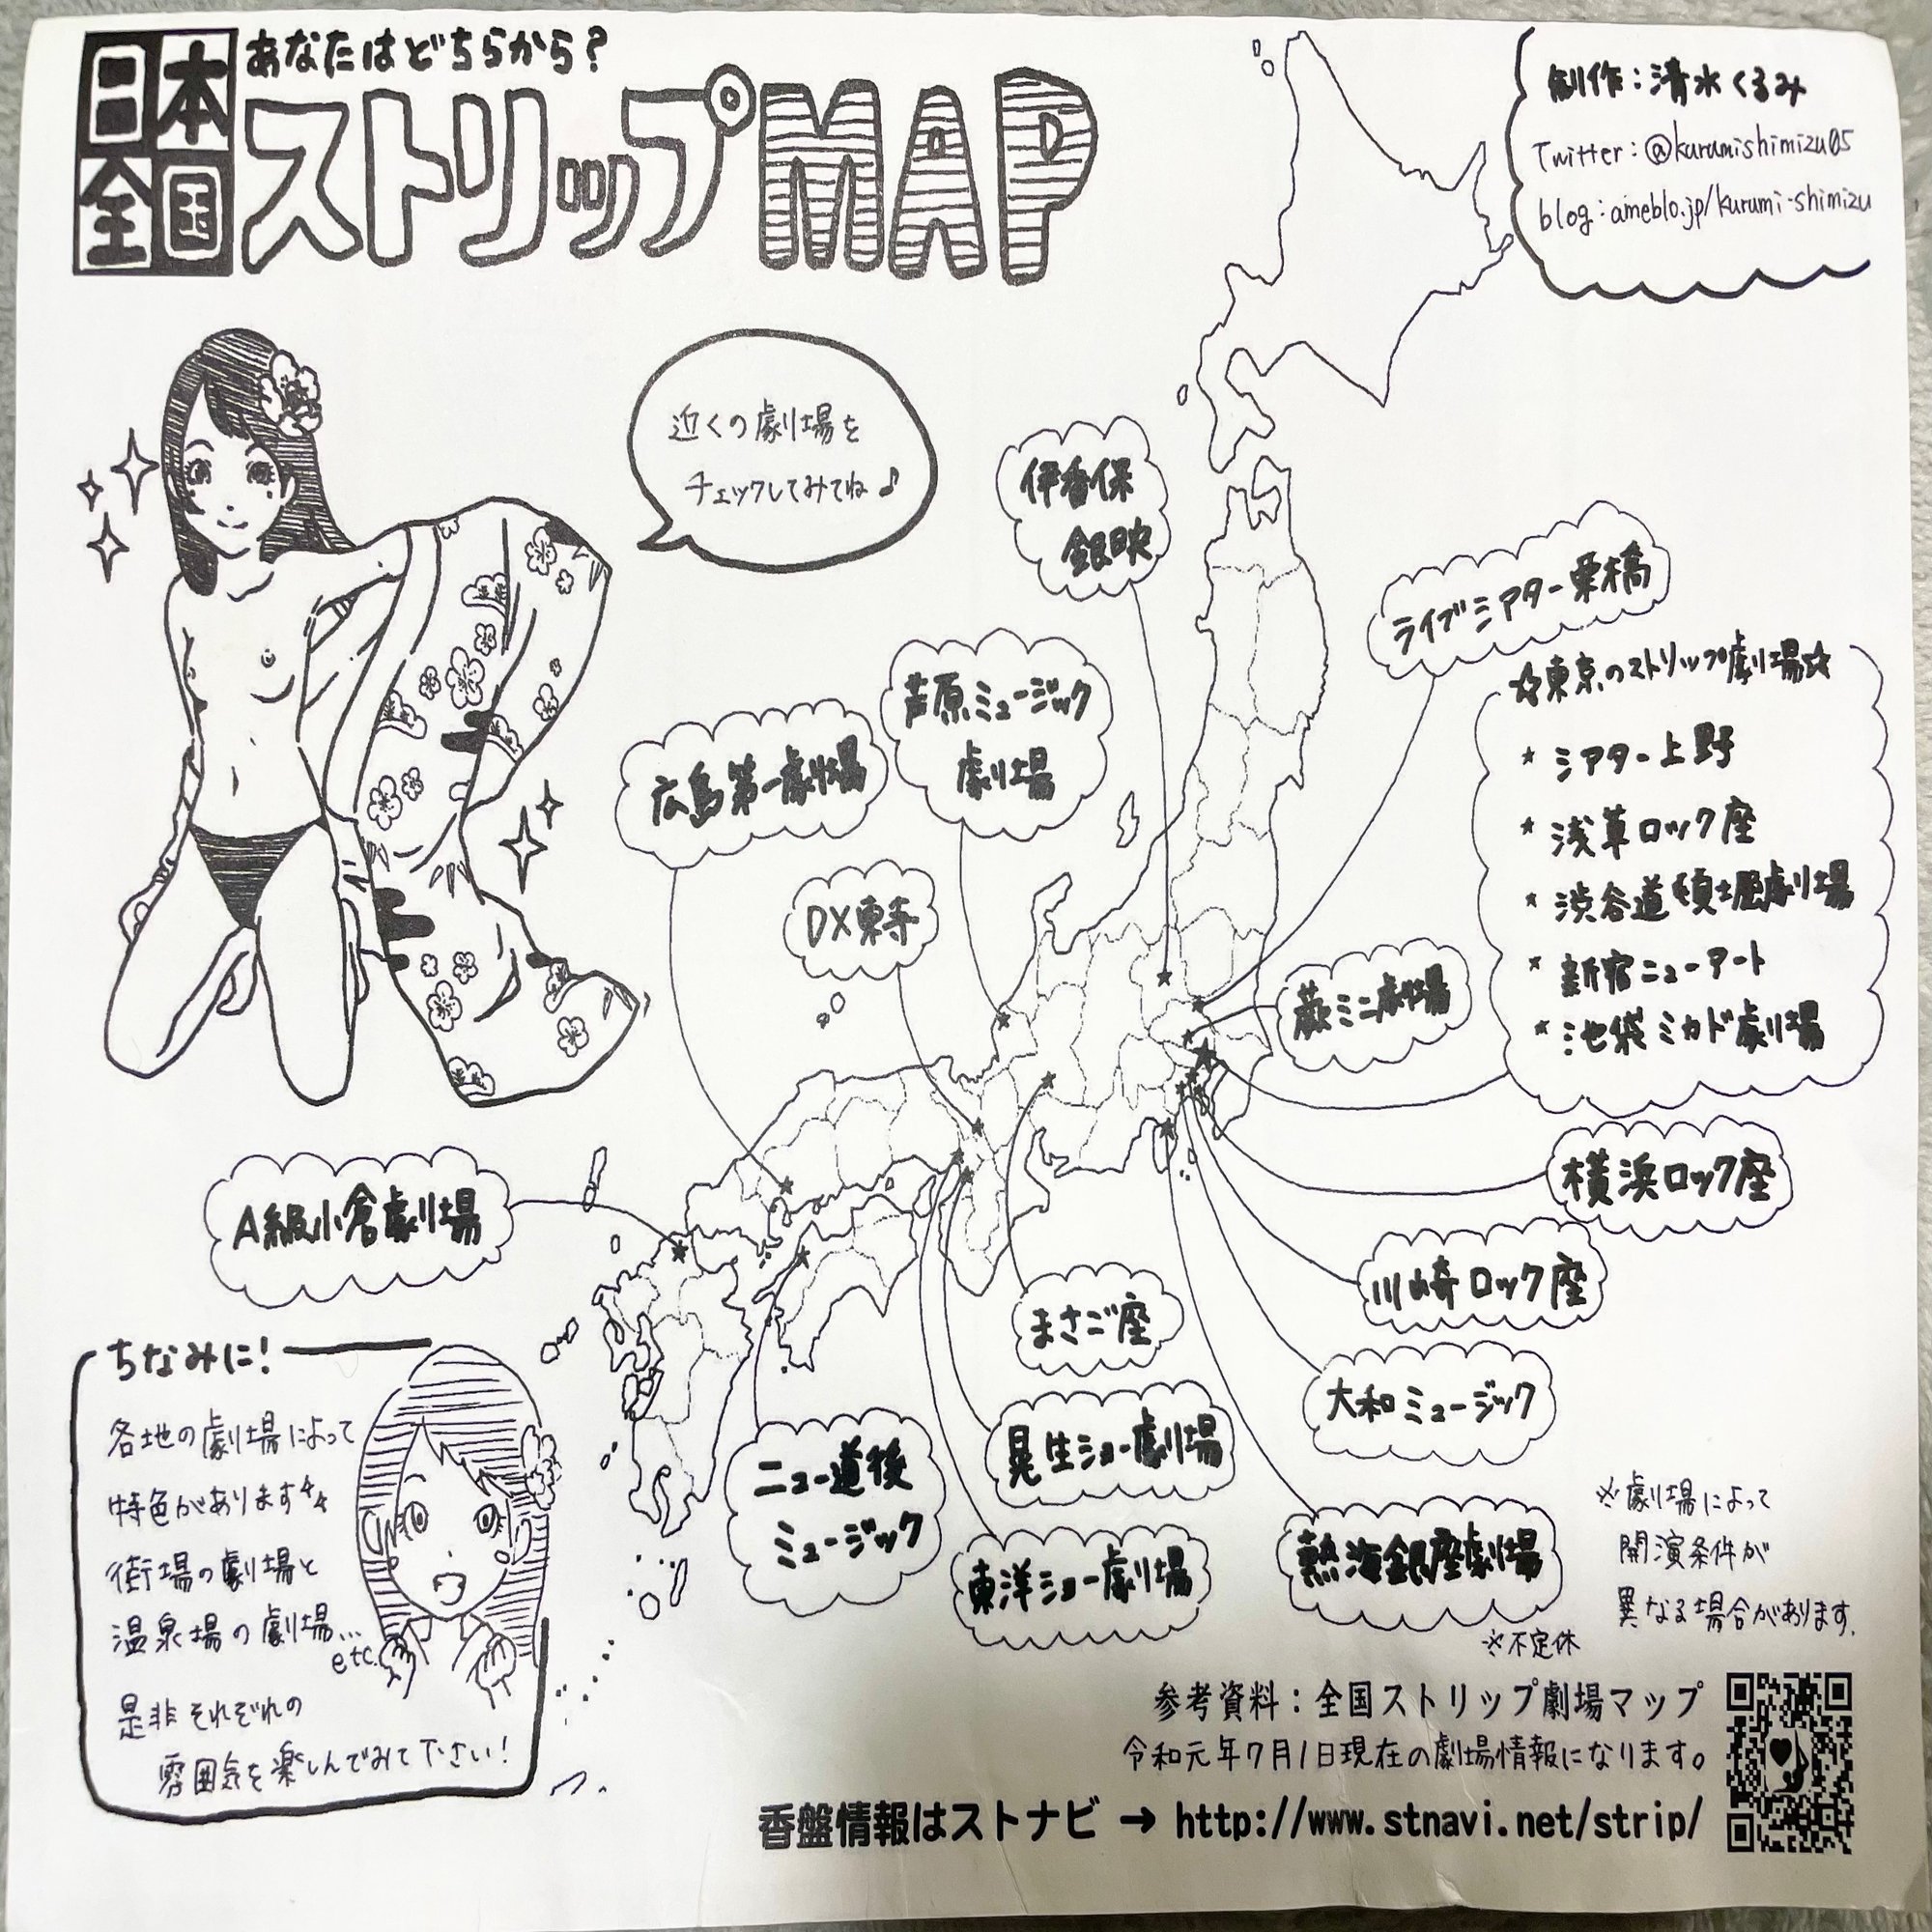 あなたはどちらから?
日本
全国
ストリップMAP
創作:清水くるみ
Twitter:@kurumishimizu05
blog:ameblo.jp/kurumi-shimizu
近くの劇場を
チェックしてみてね♪
伊香保
銀映
ライブシアター栗橋
芦原ミュージック
劇場
広島第一劇場
DX東寺
☆東京のストリップ劇場☆
★シアター上野
★浅草ロック座
★渋谷道頓堀劇場
★新宿ニューアート
★池袋ミカド劇場
蕨ミニ劇場
横浜ロック座
A級小倉劇場
川崎ロック座
まさご座
大和ミュージック
晃生ショー劇場
ニュー道後
ミュージック
東洋ショー劇場
熱海銀座劇場
※不定休
ちなみに!
各地の劇場によって
特色があります
街場の劇場と
温泉場の劇場...
etc.
是非それぞれの
雰囲気を楽しんでみて下さい!
※劇場によって
開演条件が
異なる場合があります.
参考資料:全国ストリップ劇場マップ
令和元年7月1日現在の劇場情報になります。
香盤情報はストナビ → http://www.stnavi.net/strip/